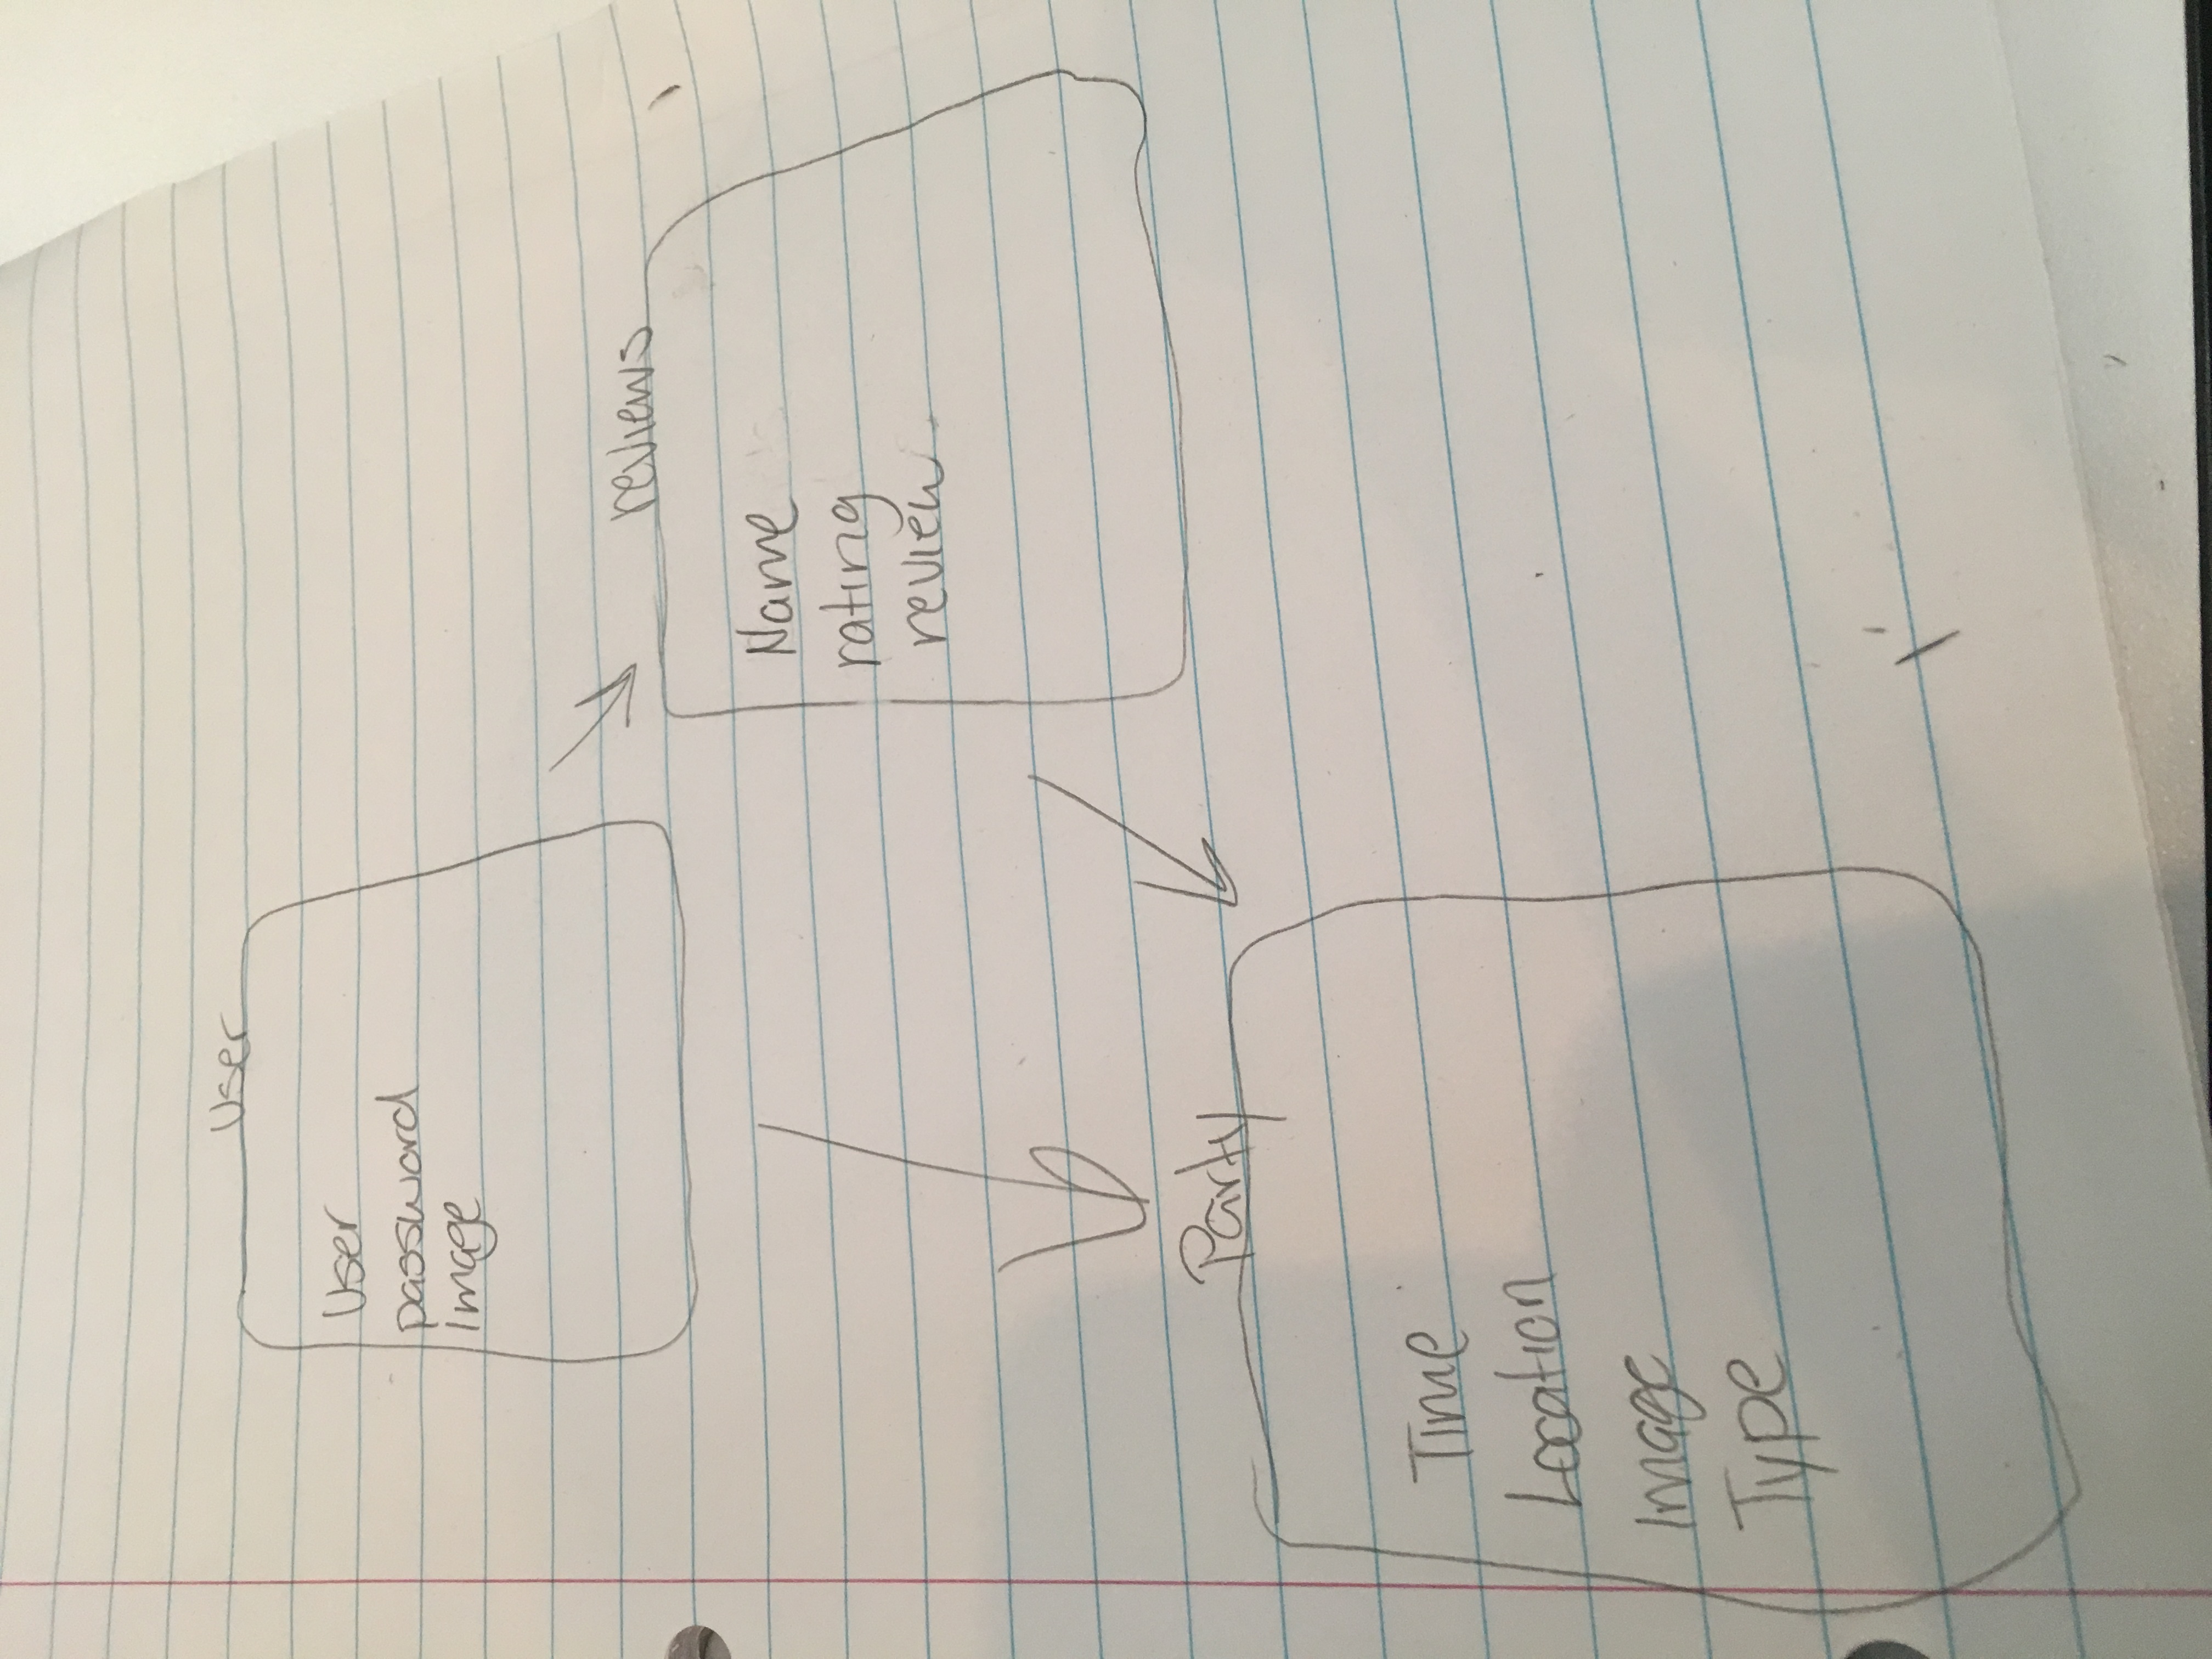 User
User
password
image
reviews
Name
rating
review
Party
Time
Location
Image
Type